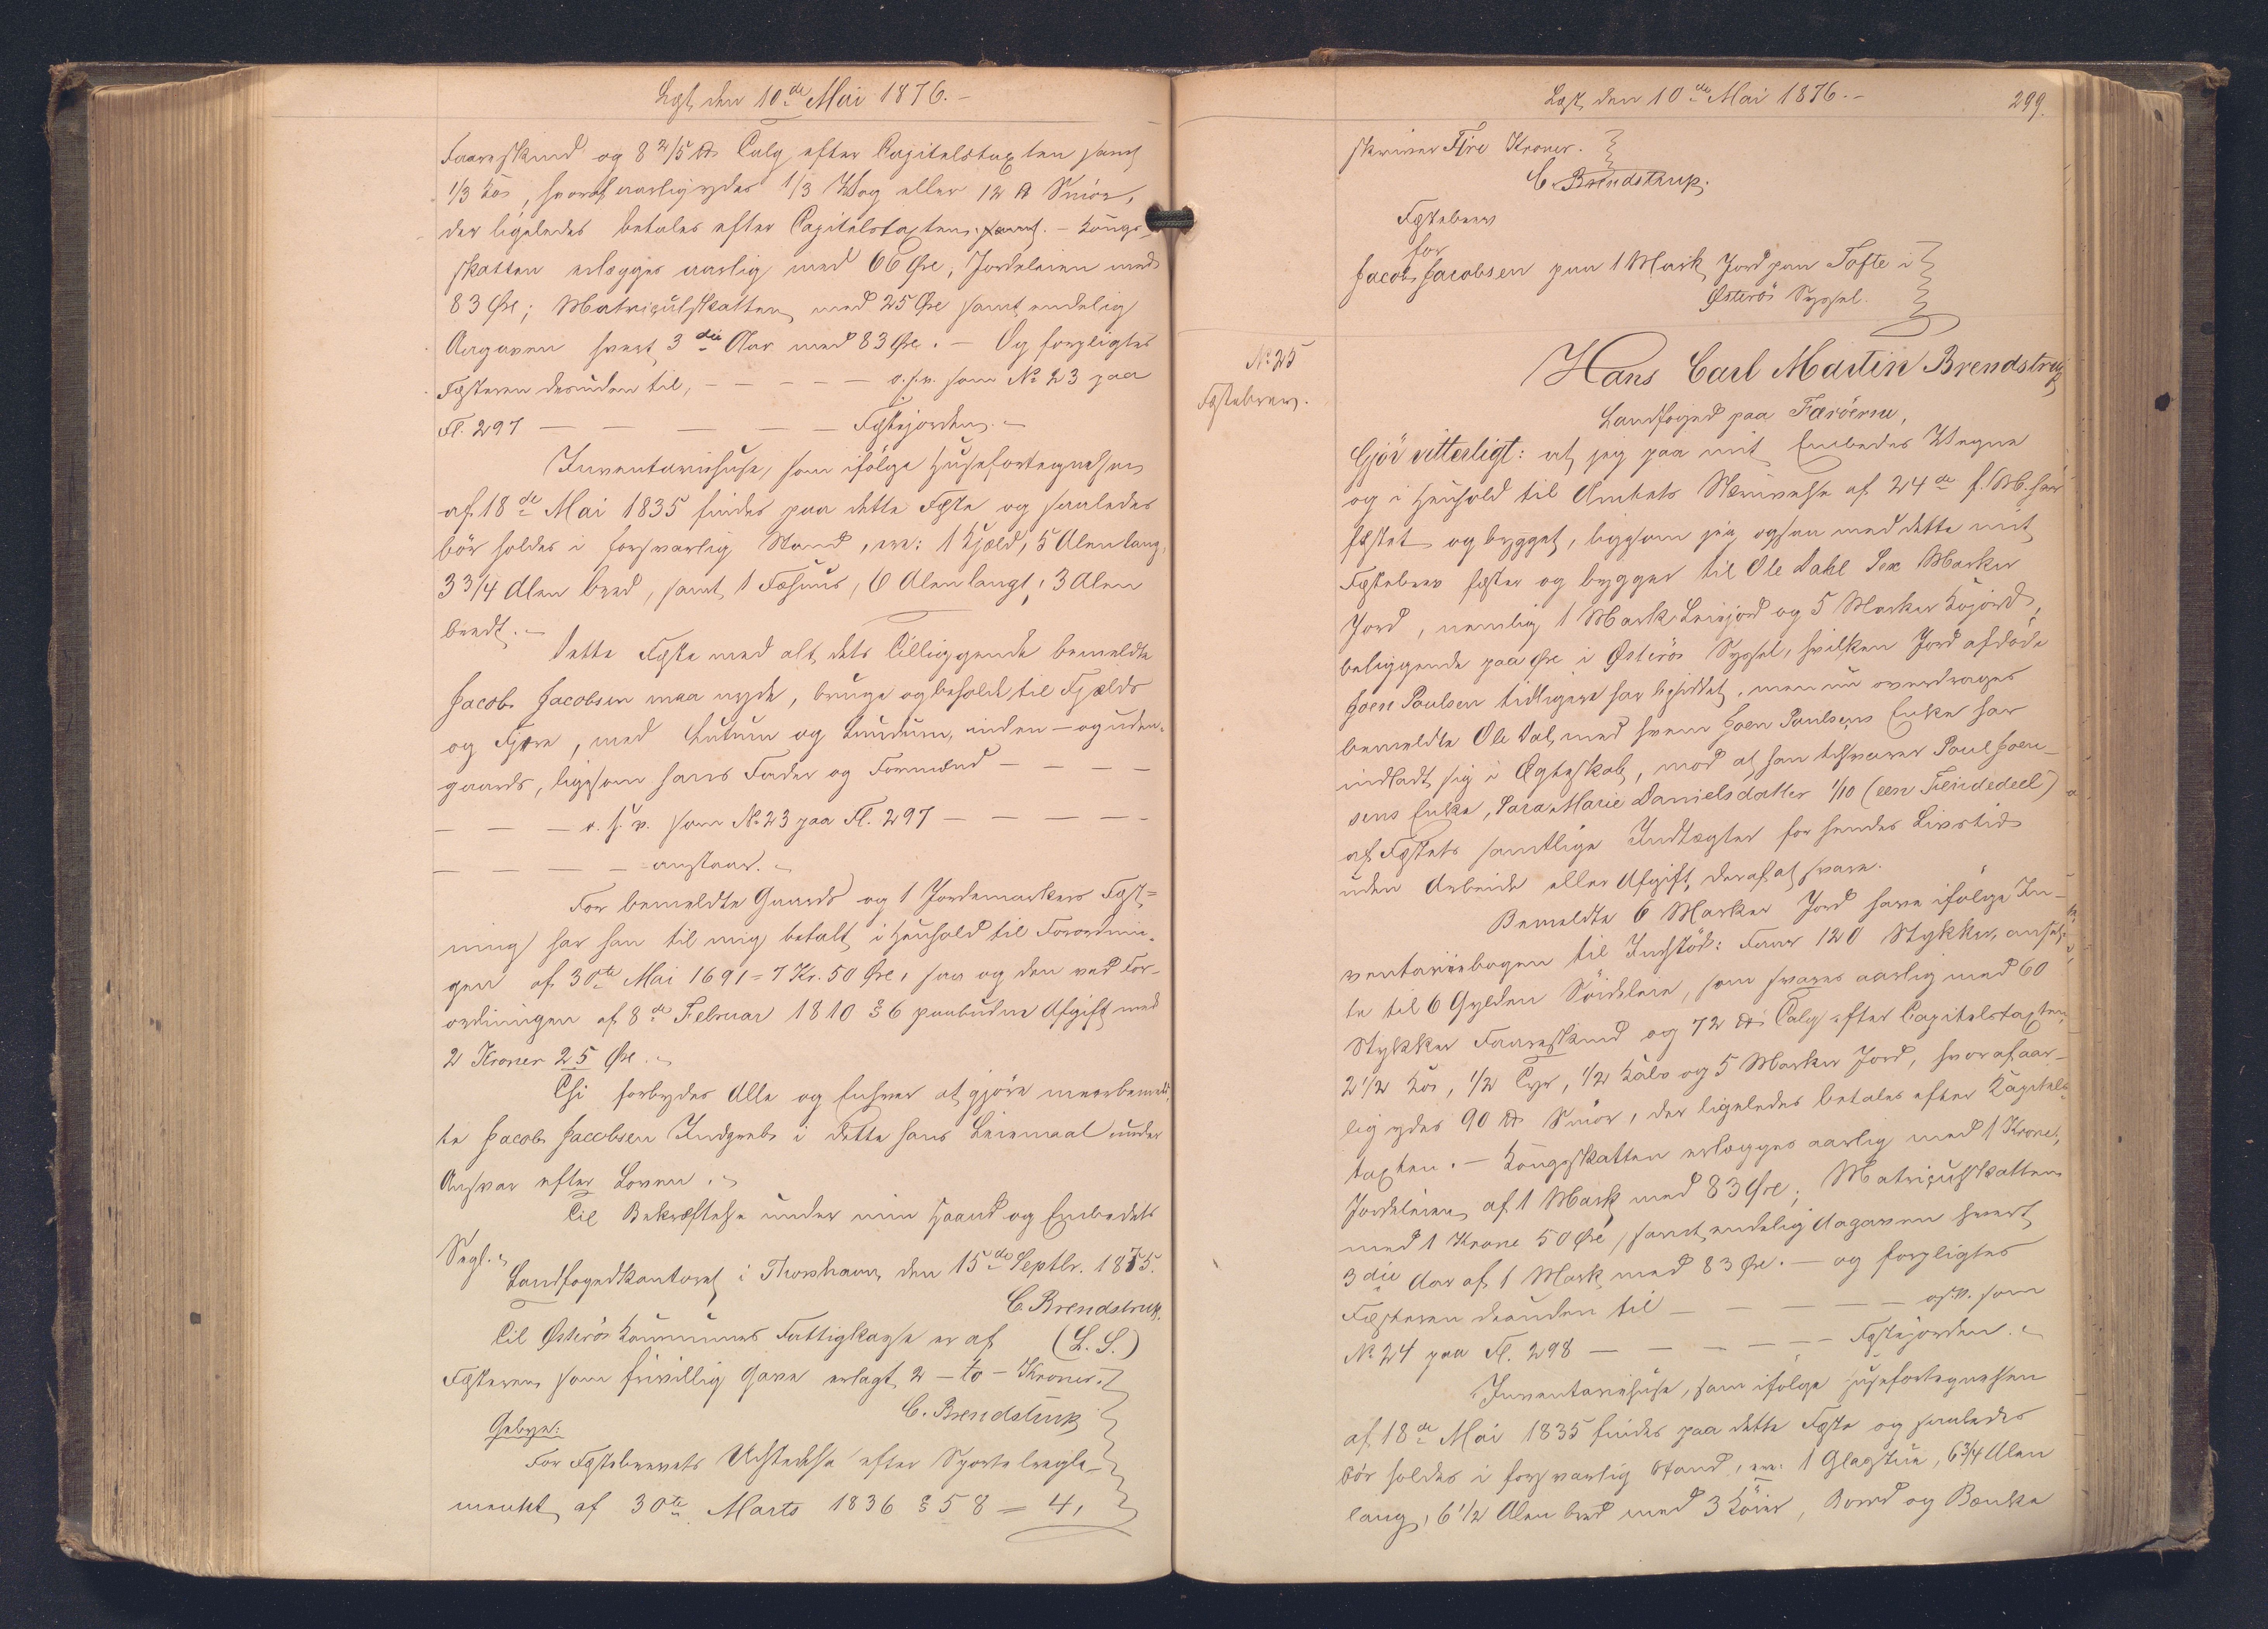 Læst den 10de Mai 1876.-
Faareskind og 8 2/5 ℔ Talg efter Capitelstaxten samt
1/3 Ko, hvoraf aarlig ydes 1/3 Vog eller 12 ℔ Smör,
der ligeledes betales efter Capitelstaxten. - Konge-
skatten erlægges aarlig med 66 Øre, Jordeleien med
83 Øre; Matriculskatten med 25 Øre samt endelig
Aagaven hvert 3die Aar med 83 Øre. - Og forpligtes
Fæsteren desuden til, - - - - - o.s.v. som No 23 paa
Fl. 297 - - - - - Fæstejorden.
Inventariehuse, som ifölge Husefortegnelsen
af 18de Mai 1835 findes paa dette Fæste og saaledes
bör holdes i forsvarlig Stand, ere: 1 Hjeld, 5 Alen lang,
3 3/4 Alen bred, samt 1 Fæhuus, 6 Alen langt, 3 Alen
bredt. -
Dette Fæste med alt dets Tilliggende bemeldte
Jacob Jacobsen maa nyde, bruge og beholde til Fjelds
og Fjære, med Lutum og Lundum, inden- og uden-
gaards, ligesom hans Fader og Formænd - - - -
- - - o.s.v. som No 23 paa Fl. 297 - - - - -
- - - - - anstaar.
For bemeldte Gaards og 1 Jordemarkers Fæst-
ning har han til mig betalt i Henhold til Forordnin-
gen af 30te Mai 1691 = 7 Kr. 50 Øre, saa og den ved For-
ordningen af 8de Februar 1810 § 6 paabudne Afgift med
2 Kroner 25 Øre.
Thi forbydes Alle og Enhver at gjöre meerbemeld-
te Jacob Jacobsen Indgreb i dette hans Leiemaal under
Ansvar efter Loven.
Til Bekræftelse under min Haand og Embedets
Segl.
Landfogedkontoret i Thorshavn, den 15de Septbr. 1875.
C. Brendstrup.
(L. S.)
Til Österös Kommunes Fattigkasse er af
Fæsteren som frivillig Gave erlagt 2 - to - Kroner.
C. Brendstrup
Gebyr:
For Fæstebrevets Udstedelse efter Sportelregle-
mentet af 30te Marts 1836 § 58 = 4,
Læst den 10de Mai 1876.-
299.
skriver Fire Kroner.
C. Brendstrup.
Fæstebrev
for
Jacob Jacobsen paa 1 Mark Jord paa Tofte i
Österös Syssel.
No 25
Fæstebrev.
Hans Carl Martin Brendstrup
Landfoged paa Færöerne,
Gjör vitterligt: at jeg paa mit Embedes Vegne
og i Henhold til Amtets Skrivelse af 24de f. M. har
fæstet og bygget, ligesom jeg ogsaa med dette mit
Fæstebrev fæster og bygger til Ole Dahl Sex Marker
Jord, nemlig 1 Mark Leiejord og 5 Marker Kojord,
beliggende paa Øre i Österös Syssel, hvilken Jord afdöde
Joen Poulsen tidligere har besiddet, men nu overdrages
bemeldte Ole Dal, med hvem Joen Poulsens Enke har
indladt sig i Ægteskab, mod at han tilsvarer Poul Joen-
sens Enke, Sara Marie Danielsdatter 1/10 (een Tiendedeel)
af Fæstets samtlige Indtægter for hendes Livstid
uden Arbeide eller Afgift deraf at svare.
Bemeldte 6 Marker Jord have ifölge In-
ventariebogen til Indstöd: Faar 120 Stykker, ansat-
te til 6 Gylden Söideleie, som svares aarlig med 60
Stykker Faareskind og 72 ℔ Talg efter Capitelstaxten,
2 1/2 Ko, 1/2 Tyr, 1/2 Kalv og 5 Marker Jord, hvoraf aar-
lig ydes 90 ℔ Smör, der ligeledes betales efter Kapitels-
taxten. - Kongeskatten erlægges aarlig med 1 Krone,
Jordeleien af 1 Mark med 83 Øre; Matriculskatten
med 1 Krone 50 Øre, samt endelig Aagaven hvert
3die Aar af 1 Mark med 83 Øre. - og forpligtes
Fæsteren desuden til - - - - - o.s.v. som
No 24 paa Fl. 298 - - - - - Fæstejorden.
Inventariehuse, som ifölge Husefortegnelsen
af 18de Mai 1835 findes paa dette Fæste og saaledes
bör holdes i forsvarlig Stand, ere: 1 Glasstue, 6 3/4 Alen
lang, 6 1/2 Alen bred med 3 Köier, Bord og Bænke